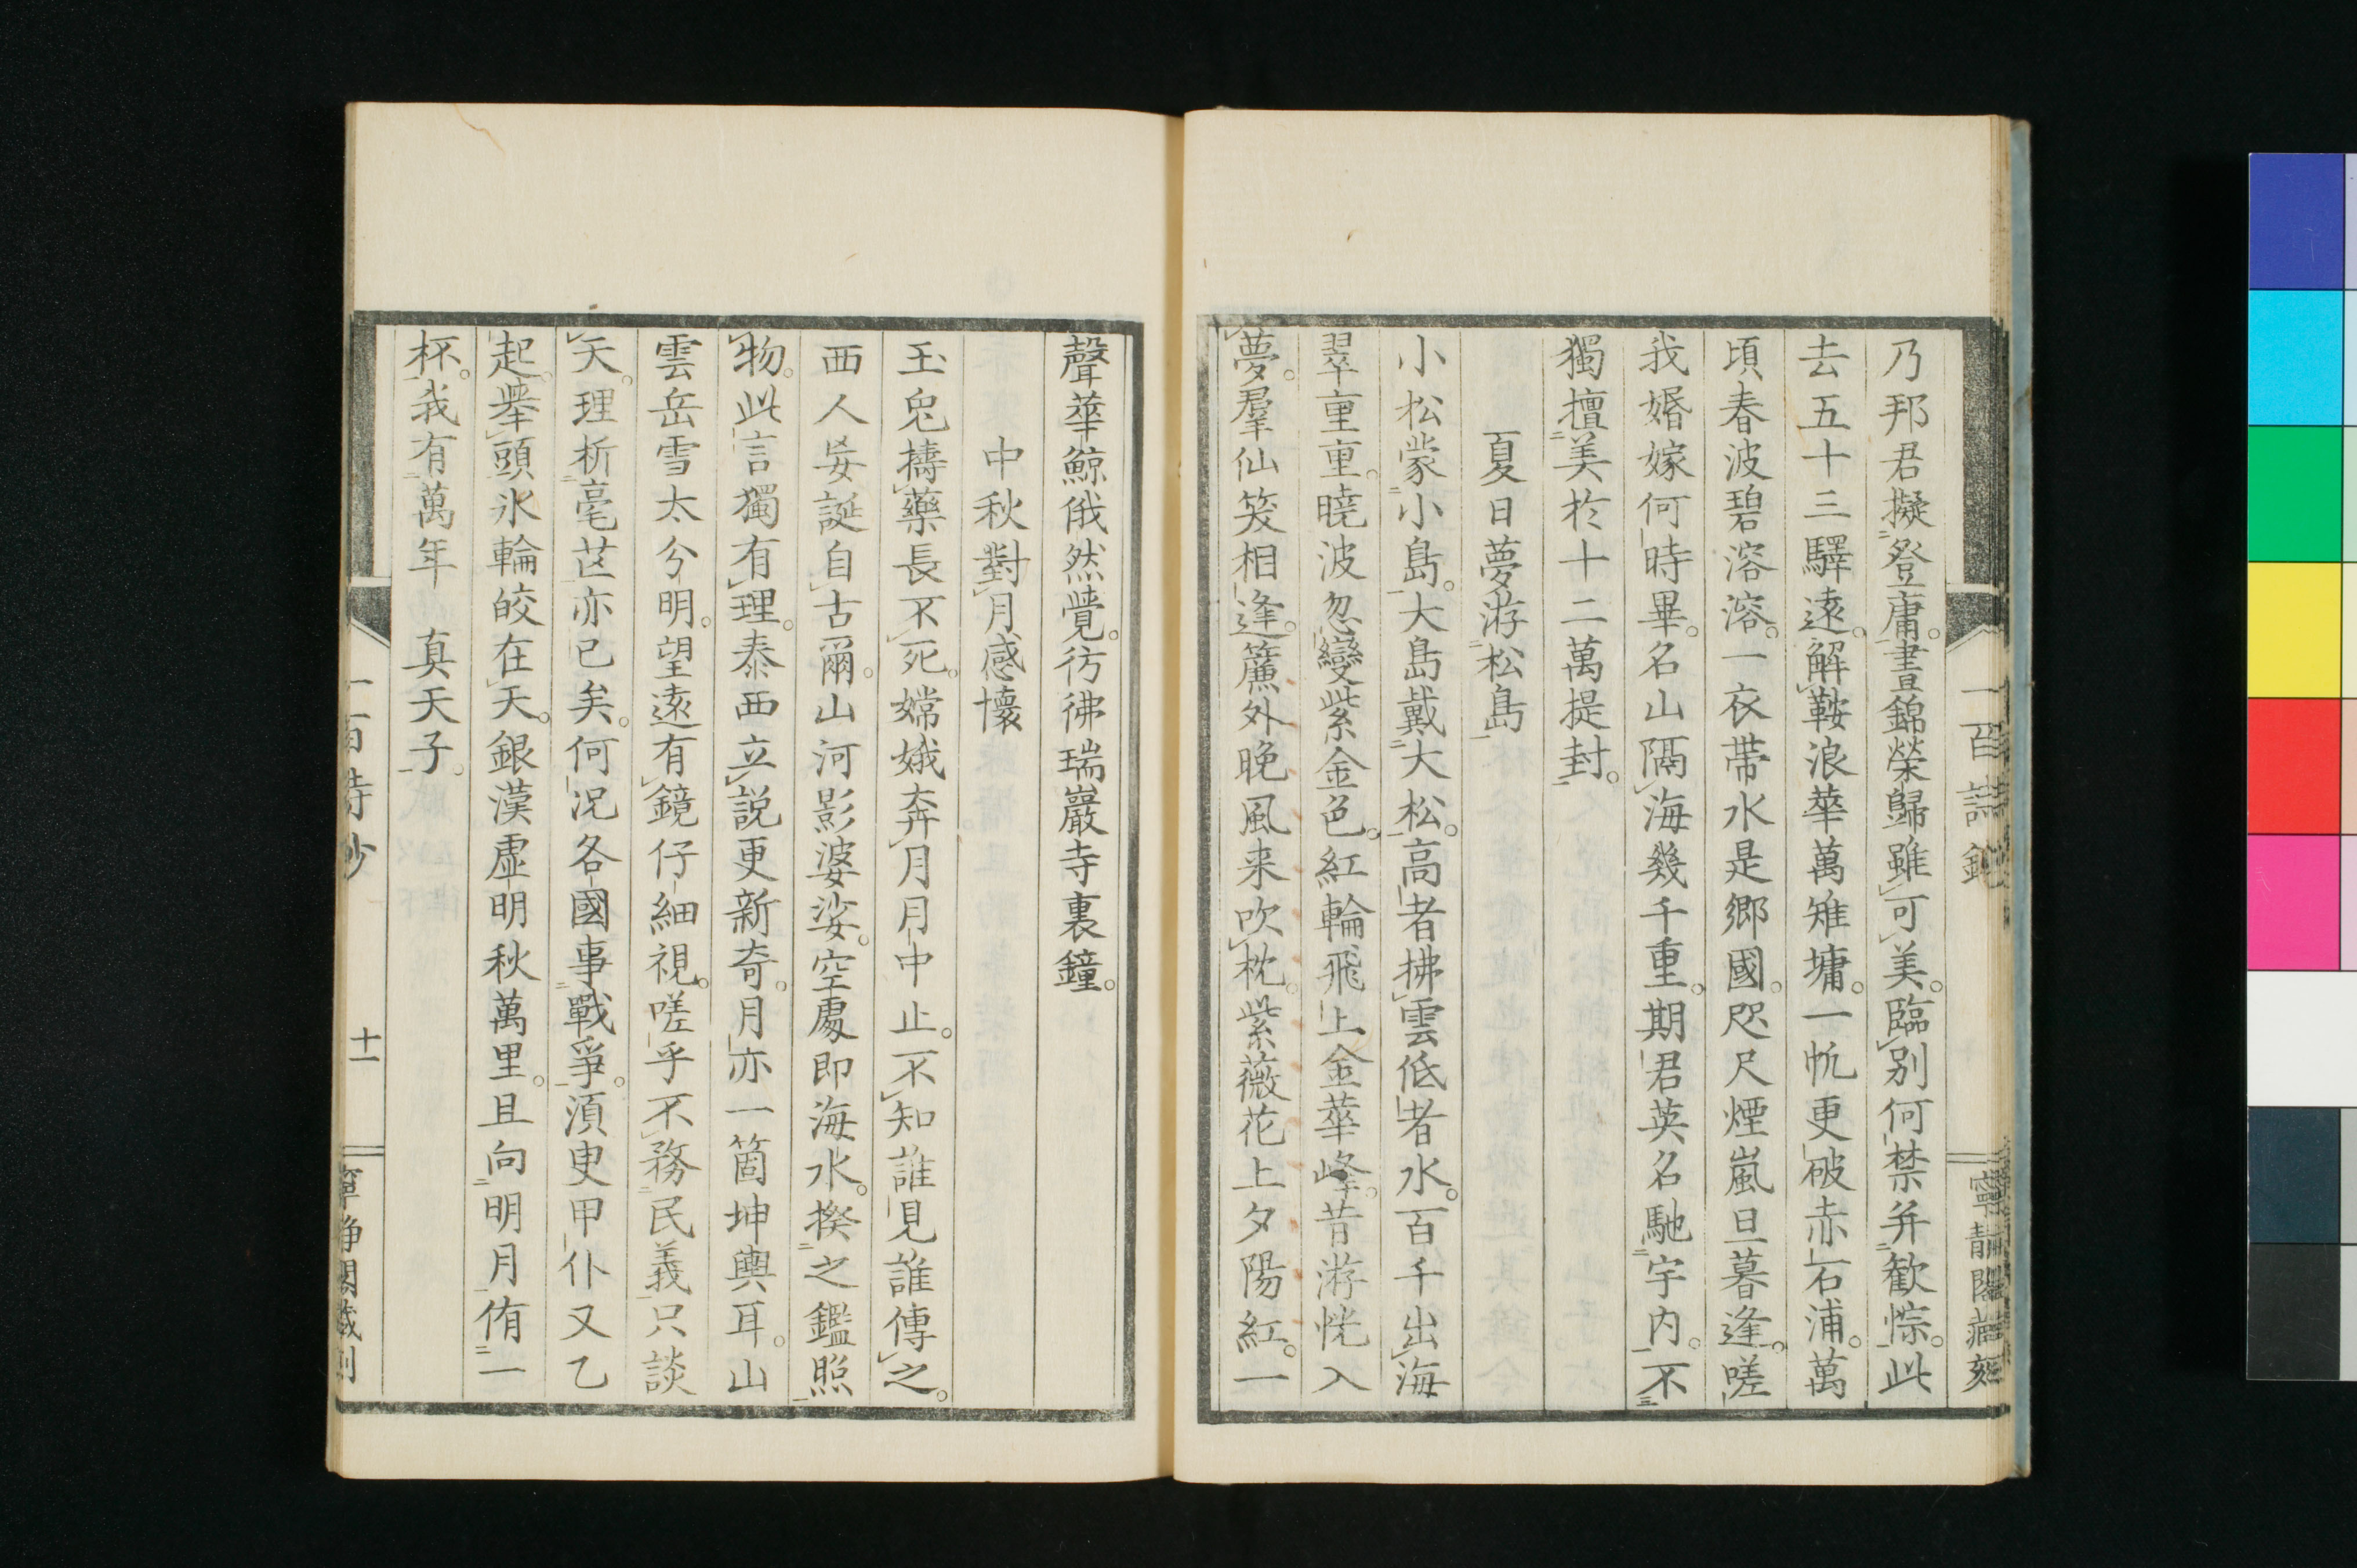 乃邦君擬登庸。晝錦榮歸雖可美。臨別何禁并歡悰。此
去五十三驛遠。解鞍浪華萬雉墉。一帆更破赤石浦。萬
頃春波碧溶溶。一衣帶水是鄉國。咫尺煙嵐旦暮逢。嗟
我婚嫁何時畢。名山隔海幾千重。期君英名馳宇内。不
獨擅美於十二萬提封。
夏日夢游松島
小松蒙小島。大島戴大松。高者拂雲低者水。百千出海
翠重重。曉波忽變紫金色。紅輪飛上金華峰。昔游恍入
夢。羣仙笑相逢。簾外晚風来吹枕。紫薇花上夕陽紅。一
聲華鯨俄然覺。彷彿瑞巖寺裏鐘。
中秋對月感懷
玉兔擣藥長不死。嫦娥奔月月中止。不知誰見誰傳之。
西人妄誕自古爾。山河影婆娑。空處即海水。揆之鑑照
物。此言獨有理。泰西立説更新奇。月亦一箇坤輿耳。山
雲岳雪太分明。望遠有鏡仔細視。嗟乎不務民義只談
天。理析毫芒亦已矣。何况各國事戰爭。須臾甲仆又乙
起。舉頭氷輪皎在天。銀漢虛明秋萬里。且向明月侑一
杯。我有萬年 真天子。
一百詩鈔
寧靜閣藏刻
一百詩鈔
十一
寧靜閣藏刻